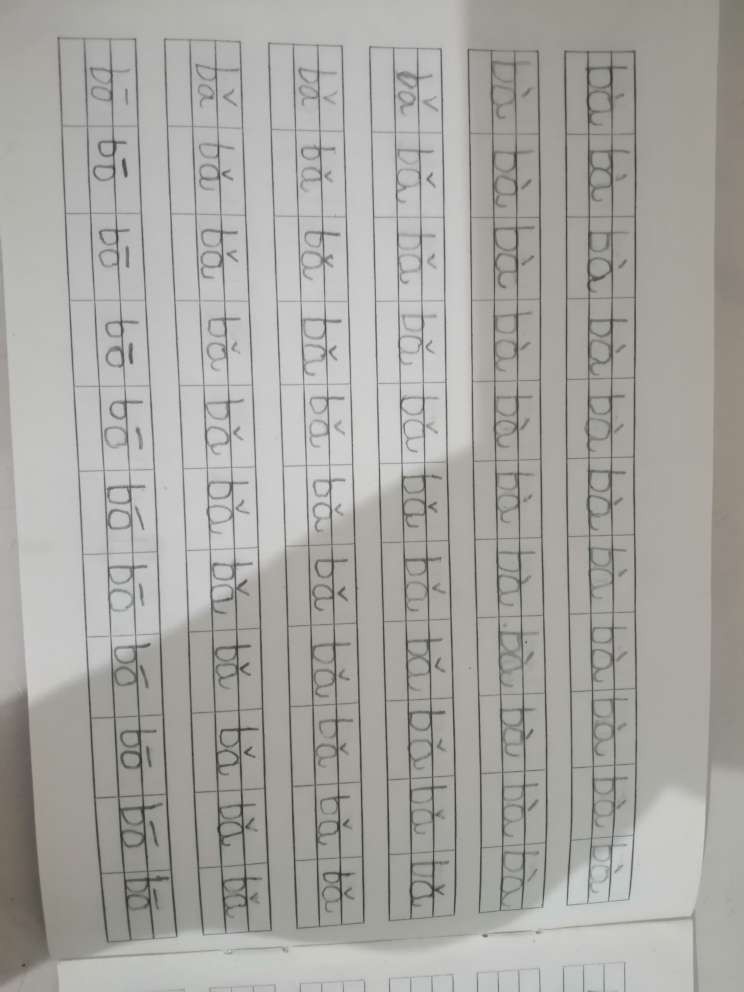 bà bà bà bà bà bà bà bà bà bà bà
bà bà bà bà bà bà bà bà bà bà bà
bǎ bǎ bǎ bǎ bǎ bǎ bǎ bǎ bǎ bǎ bǎ
bǎ bǎ bǎ bǎ bǎ bǎ bǎ bǎ bǎ bǎ bǎ
bǎ bǎ bǎ bǎ bǎ bǎ bǎ bǎ bǎ bǎ bǎ
bō bō bō bō bō bō bō bō bō bō bō